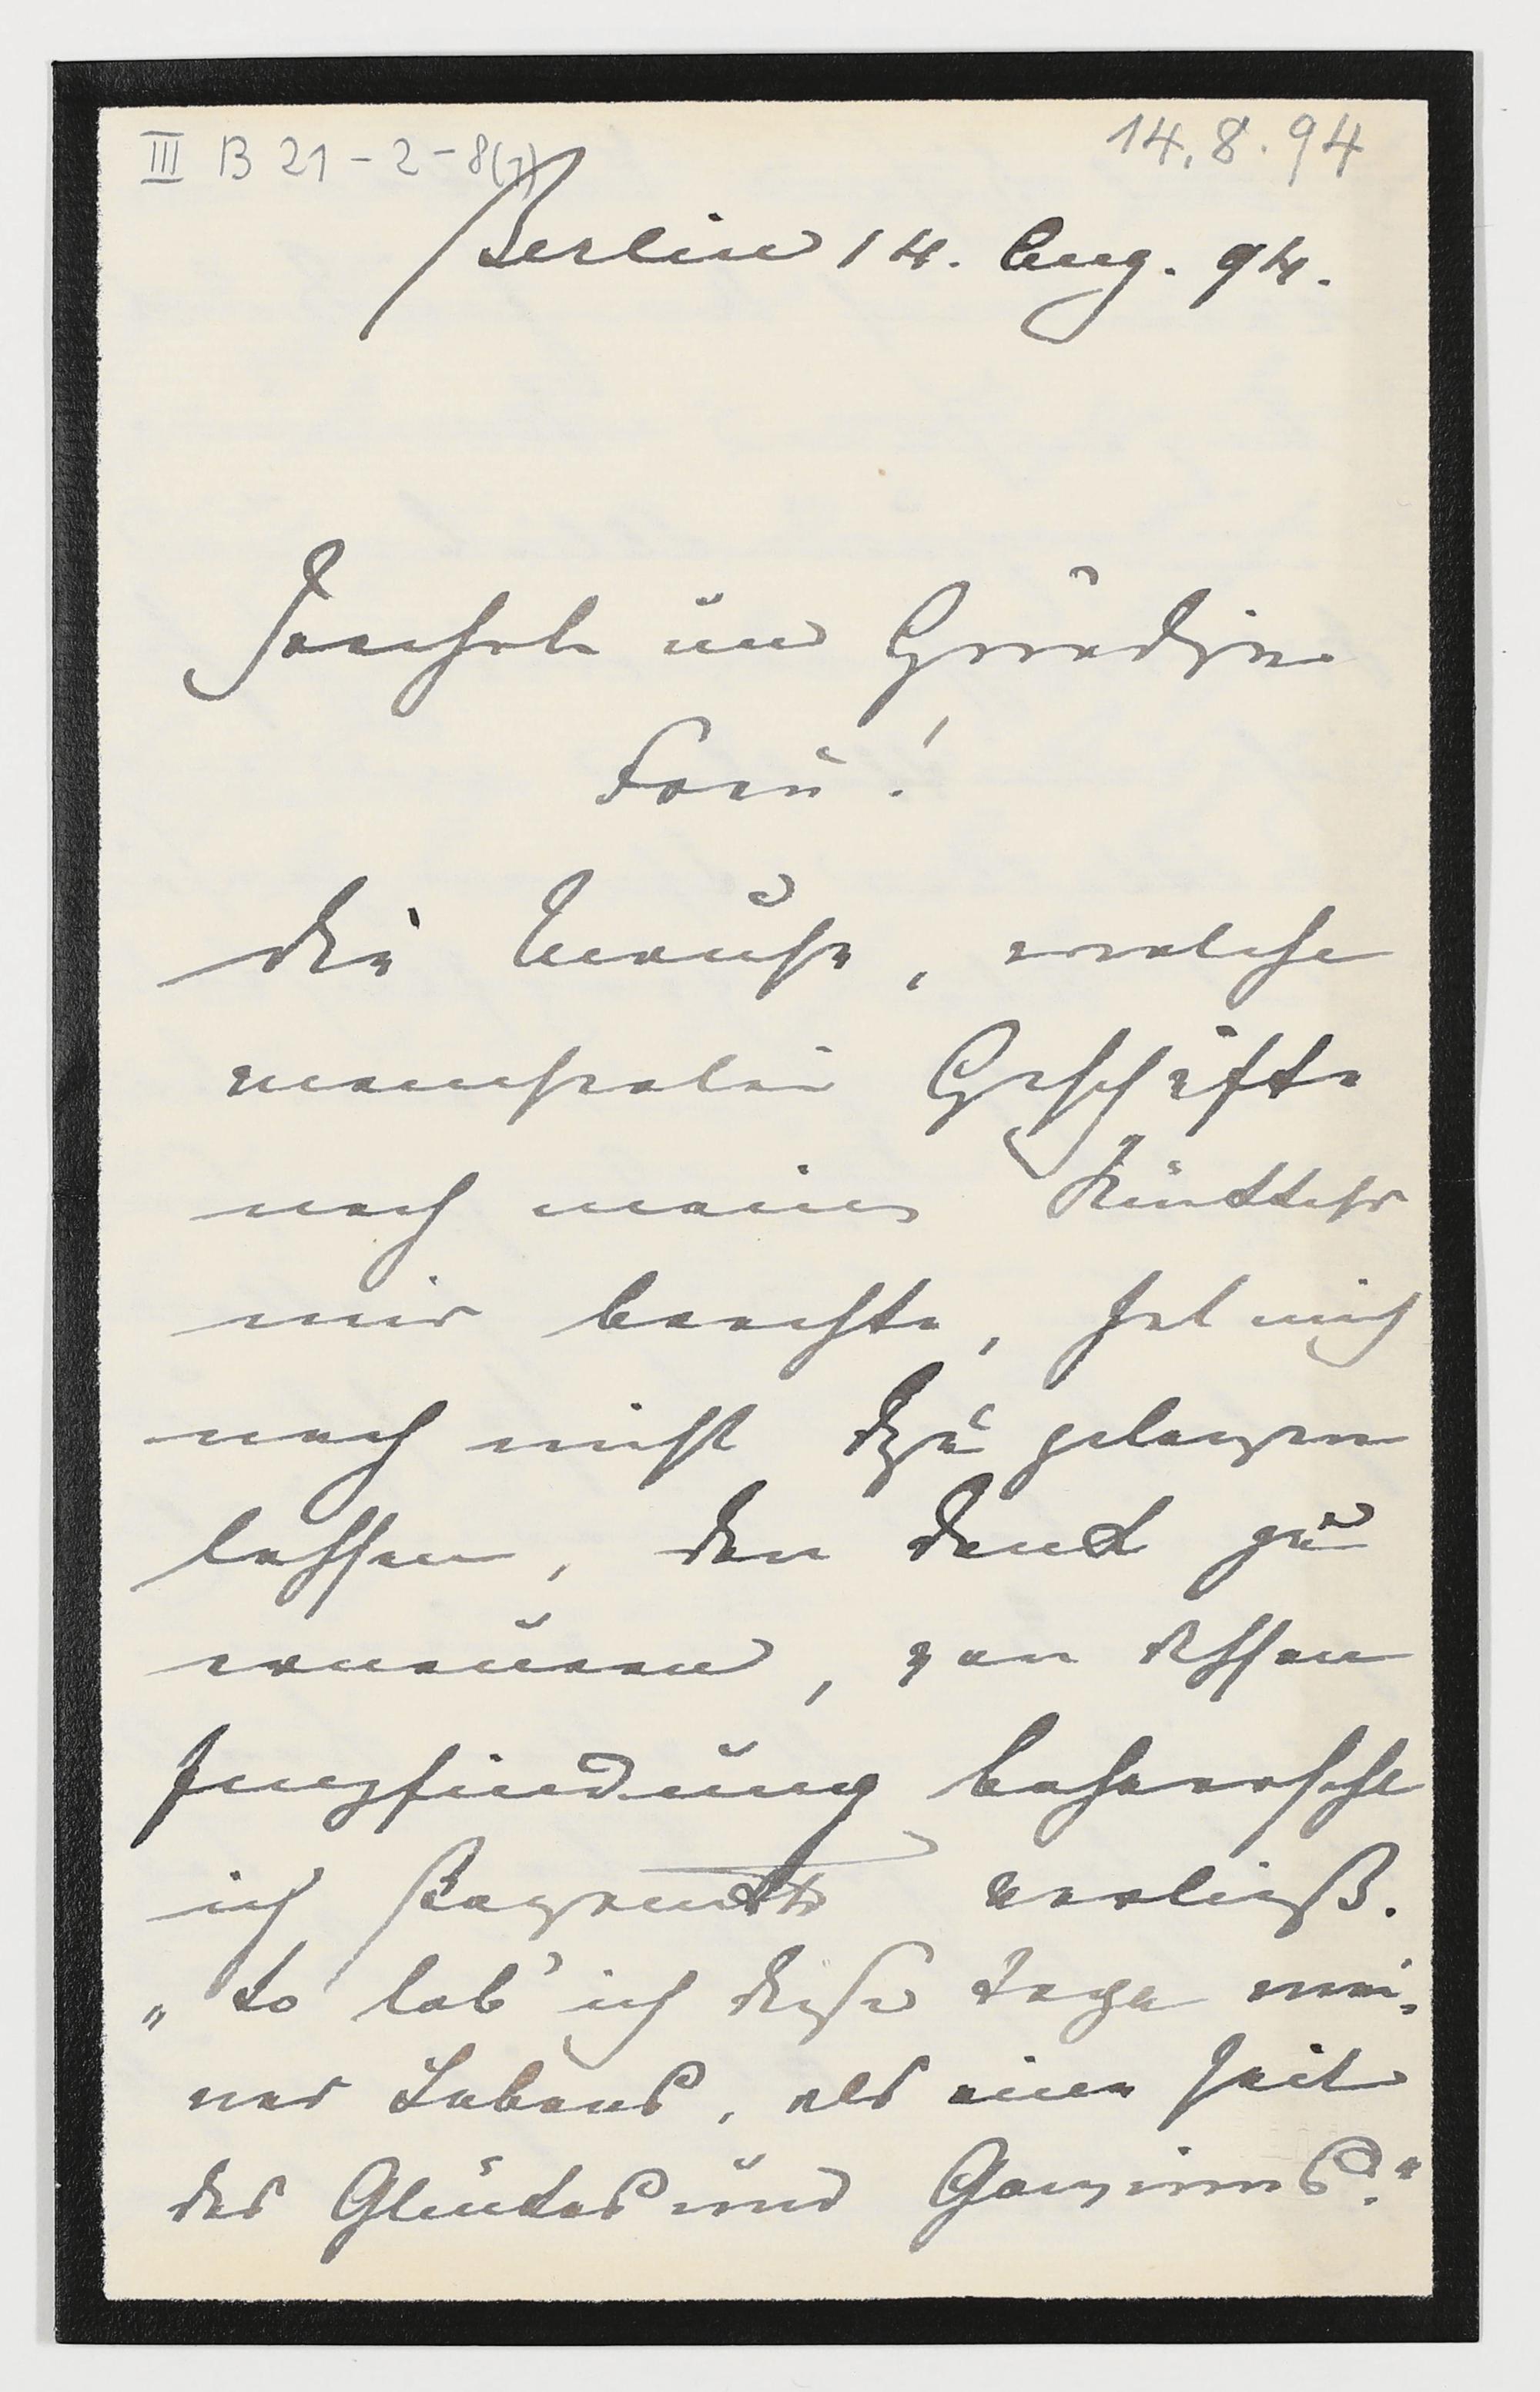 III B 21-2-8(1)
14.8.94
Berlin 14. Aug. 94.
Verehrte und Gnädige
Frau!
Die Unruhe, welche
mancherlei Geschäfte
nach meiner Rückkehr
mir brachte, hat mich
noch nicht dazu gelangen
lassen, den Dank zu
erneuern, von dessen
Empfindung beherrscht
ich Bayreuth verließ.
„So leb' ich diese Tage mei-
nes Lebens, als eine Zeit
des Glückes und Gewinns."